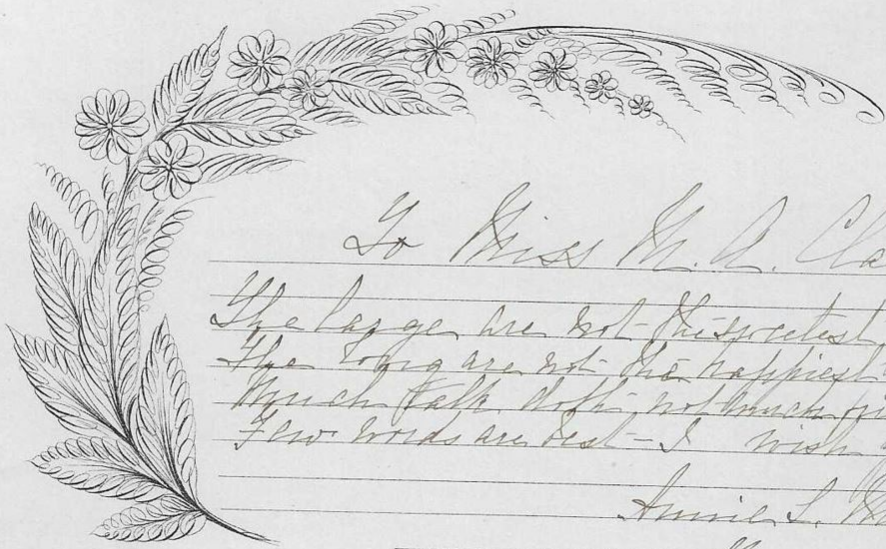 To Miss M. A. Cla
The large are not the sweetest
The long are not the happiest
Much talk doth not much
Few words are best – I wish
Annie L. M